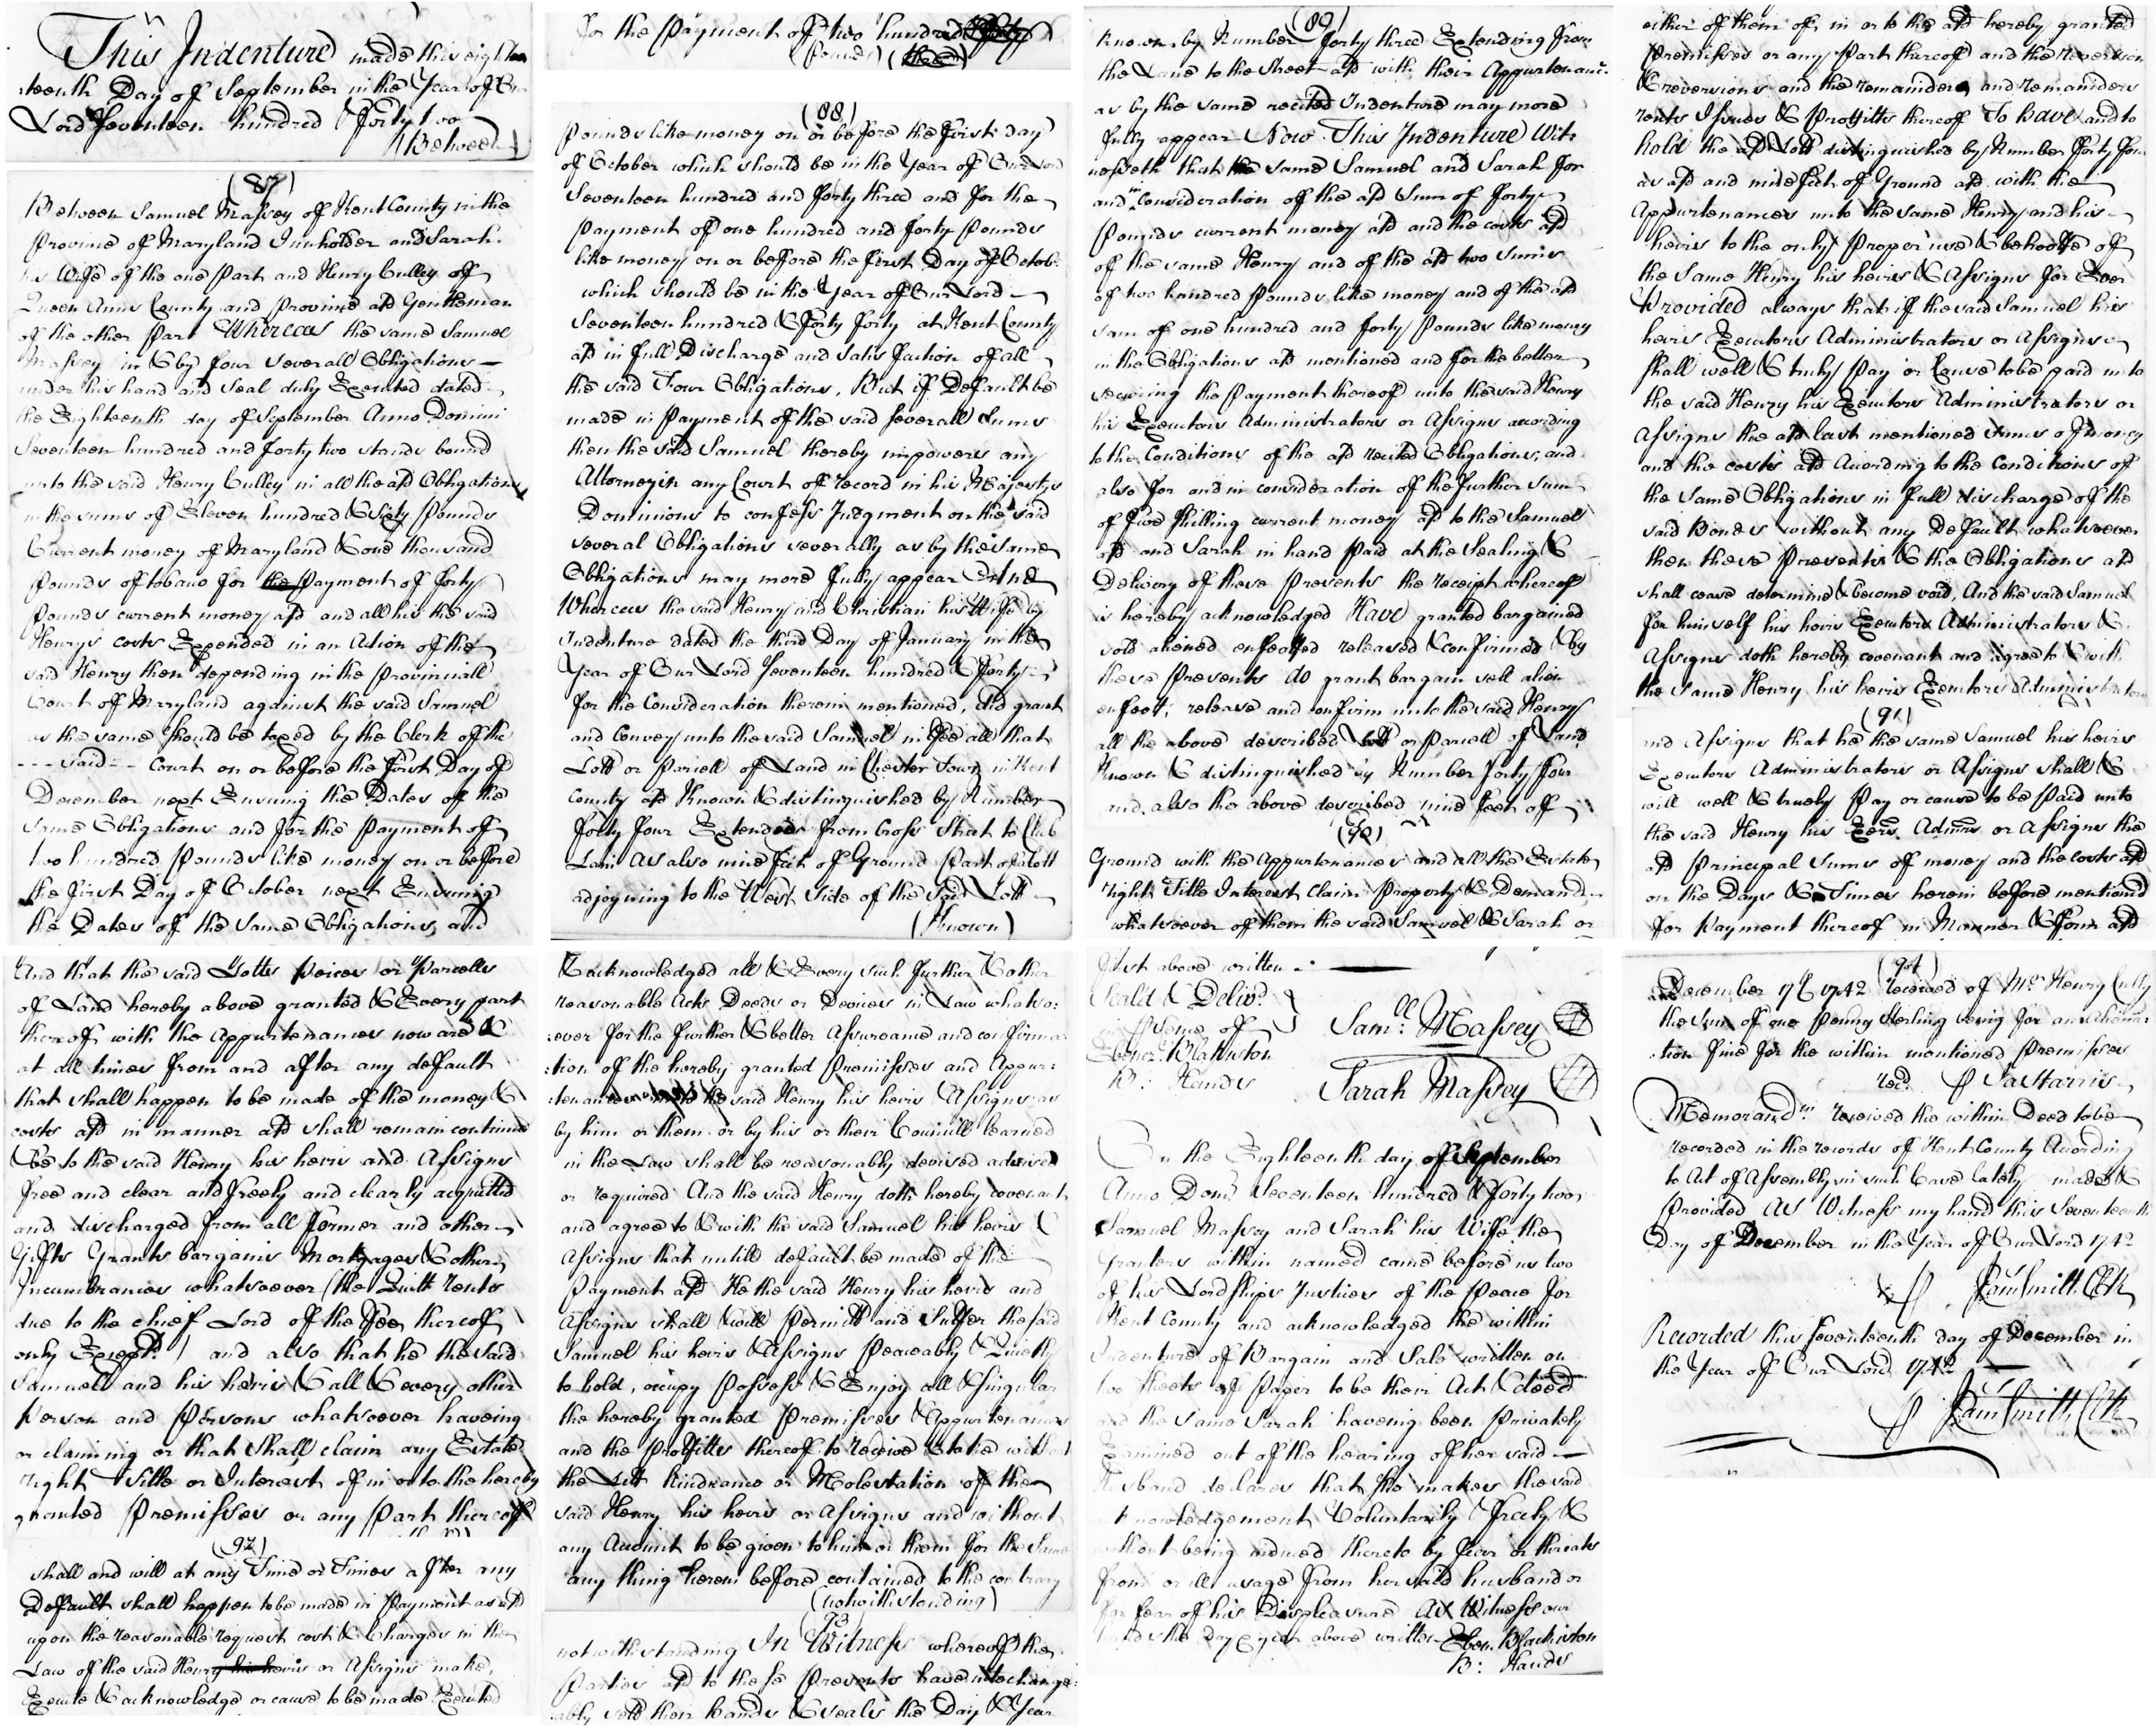 This Indenture made this eigh
teenth Day of September in the Year of Our
Lord Seventeen hundred & Forty two
Between
(87)
Between Samuel Massey of Kent County in the
Province of Maryland Innholder and Sarah
his Wife of the one Part and Henry Culley of
Queen Anns County and Province afd Gentleman
of the other Part Whereas the same Samuel
Massey in & by four severall Obligations
under his hand and Seal duly Executed dated
the Eighteenth day of September Anno Domini
Seventeen hundred and Forty two stands bound
unto the said Henry Culley in all the afd Obligations
in the sums of Eleven hundred & Sixty Pounds
Current money of Maryland & one thousand
Pounds of tobacco for the Payment of forty
Pounds current money afd and all his the said
Henrys costs Expended in an Action of the
said Henry then depending in the Provinciall
Court of Maryland against the said Samuel
as the same should be taxed by the Clerk of the
said Court on or before the First Day of
December next Ensuing the Dates of the
same Obligations and for the Payment of
two hundred Pounds like money on or before
the First Day of October next Ensuing
the Dates of the Same Obligations, and
for the Payment of two hundred
(Pounds)
(88)
Pounds like money on or before the First day
of October which should be in the Year of Our Lord
Seventeen hundred and forty three and for the
Payment of one hundred and forty Pounds
like money on or before the First Day of Octob.
which should be in the Year of Our Lord
Seventeen hundred & Forty Forty at Kent County
afd in full Discharge and Satisfaction of all
the said Four Obligations, But if Default be
made in Payment of the said severall Sums
then the said Samuel thereby impowers any
Attorney in any Court of record in his Majestys
Dominions to confess Judgment on the said
several Obligations severally as by the same
Obligations may more fully appear And
Whereas the said Henry and Christian his Wife by
Indenture dated the third Day of January in the
Year of Our Lord Seventeen hundred & Forty
for the Consideration therein mentioned, did grant
and Convey unto the said Samuel in Fee all that
Lott or Parcell of Land in Chester Town in Kent
County afd Known & distinguished by Number
forty four Extended from Cross Street to Club
Lane As also nine Feet of Ground Part of a Lott
adjoyning to the West Side of the Said Lott
(Known)
(89)
Known by Number forty three Extending from
the Lane to the Street afd with their Appurtenanc.
as by the same recited Indenture may more
fully appear Now This Indenture Wit
nesseth that the same Samuel and Sarah for
and in Consideration of the afd Sum of forty
Pounds current money afd and the costs afd
of the same Henry and of the afd two Sums
of two hundred Pounds like money and of the afd
sum of one hundred and forty Pounds like money
in the Obligations afd mentioned and for the better
securing the Payment thereof unto the said Henry
his Executors Administrators or Assigns according
to the Conditions of the afd recited Obligations, and
also for and in consideration of the further sum
of five Shilling current money afd to the Samuel
afd and Sarah in hand Paid at the Sealing &
Delivery of these Presents the receipt whereof
is hereby acknowledged Have granted bargained
sold aliened enfeoffed released & confirmed & by
these Presents do grant bargain sell alien
enfeof, release and confirm unto the said Henry
all the above described Lott or Parcell of Land
Known & distinguished by Number forty four
and also the above described nine feet of
(90)
Ground with the Appurtenances and all the Estate
right Title Interest Claim Property & Demand
whatsoever of them the said Samuel & Sarah or
either of them of, in or to the afd hereby granted
Premisses or any Part thereof and the Reversion
& reversions and the remainder, and remainders
rents Issues & Proffitts thereof To have and to
hold the afd Lott distinguished by Number forty four
as afd and nine feet of Ground afd with the
Appurtenances unto the same Henry and his
heirs to the only Proper use & behoofe of
the Same Henry his heirs & Assigns for Ever
Provided always that if the said Samuel his
heirs Executors Administrators or Assigns
shall well & truly Pay or Cause to be paid unto
the said Henry his Executors Administrators or
Assigns the afd last mentioned Sums of money
and the costs afd According to the Conditions of
the same Obligations in full discharge of the
said Bonds without any Default whatsoever
then these Presents & the Obligations afd
shall cease determine & become void, And the said Samuel
for himself his heirs Executors Administrators &
Assigns doth hereby covenant and agree to & with
the same Henry his heirs Executors Administrators
(91)
and Assigns that he the same Samuel his heirs
Executors Administrators or Assigns shall &
will well & truely Pay or cause to be Paid unto
the said Henry his Exers. Admrs or Assigns the
afd Principal Sums of money and the costs afd
on the Days & Times herein before mentioned
for Payment thereof in Manner & form afd
And that the said Lotts Peices or Parcells
of Land hereby above granted & Every part
thereof with the Appurtenances now are &
at all times from and after any default
that shall happen to be made of the money &
costs afd in manner afd shall remain continue
& be to the said Henry his heirs and Assigns
free and clear and freely and clearly acquitted
and discharged from all former and other
Gifts Grants bargains Mortgages & other
Incumbrances whatsoever (the Quitt rents
due to the chief Lord of the Fee thereof
only Except.) and also that he the said
Samuell and his heirs & all & every other
Person and Persons whatsoever haveing
or claiming or that shall claim any Estate
right Title or Interest of in or to the hereby
granted Premisses or any Part thereof
(92)
shall and will at any Time or Times after any
Default shall happen to be made in Payment as afd
upon the reasonable request cost & Charges in the
Law of the said Henry his heirs or Assigns make,
Execute & acknowledge or cause to be made Executed
& acknowledged all & Every such further & other
reasonable Acts Deeds or Devices in Law whatso:
:ever for the further & better Assurance and confirma
:tion of the hereby granted Premisses and Appur:
:tenances the said Henry his heirs & Assigns as
by him or them or by his or their Councill learned
in the Law shall be reasonably devised advised
or required And the said Henry doth hereby covenant
and agree to & with the said Samuel his heirs &
Assigns that untill default be made of the
Payment afd He the said Henry his heirs and
Assigns shall & will Permitt and Suffer the said
Samuel his heirs & Assigns Peaceably & Quietly
to hold, occupy Possess & Enjoy all & Singular
the hereby granted Premisses & Appurtenances
and the Proffitts thereof to receive & take without
the Lett hindrance or Molestation of the
said Henry his heirs or Assigns and without
any Account to be given to him or them for the Same
any thing herein before contained to the contrary
(notwithstanding)
(93)
notwithstanding In Witness whereof the
Parties afd to these Presents have interchange:
ably sett their hands & seals the Day & Year
first above written
Seald & Delivd
in Psence of
Ebenezr. Blakiston
B: Hands
Samll. Massey
Sarah Massey
On the Eighteenth day of September
Anno Dom Seventeen hundred & forty two
Samuel Massey and Sarah his Wife the
Grantors within named came before us two
of his Lordships Justices of the Peace for
Kent County and acknowledged the within
Indenture of Bargain and Sale written on
two sheets of Paper to be their Act & deed
and the same Sarah haveing been Privately
Examined out of the hearing of her said
Husband declares that she makes the said
acknowledgement Voluntarily Freely &
without being induced thereto by fear or threats
from or ill usage from her said husband or
for fear of his Displeasure As Witness our
hands the Day & year above written Eben. Blackiston
B: Hands
(94)
December 17th 1742 received of Mr Henry Cully
the Sum of one Penny Sterling being for an aliena:
:tion Fine for the within mentioned Premisses
recd. P Ja Harris
Memorandm received the within Deed to be
recorded in the records of Kent County According
to Act of Assembly in such Case lately made &
Provided As Witness my hand this Seventeenth
Day of December in the Year of Our Lord 1742
P. Jams Smith Clk
Recorded this Seventeenth day of December in
the Year of Our Lord 1742
P Jams Smith Clk